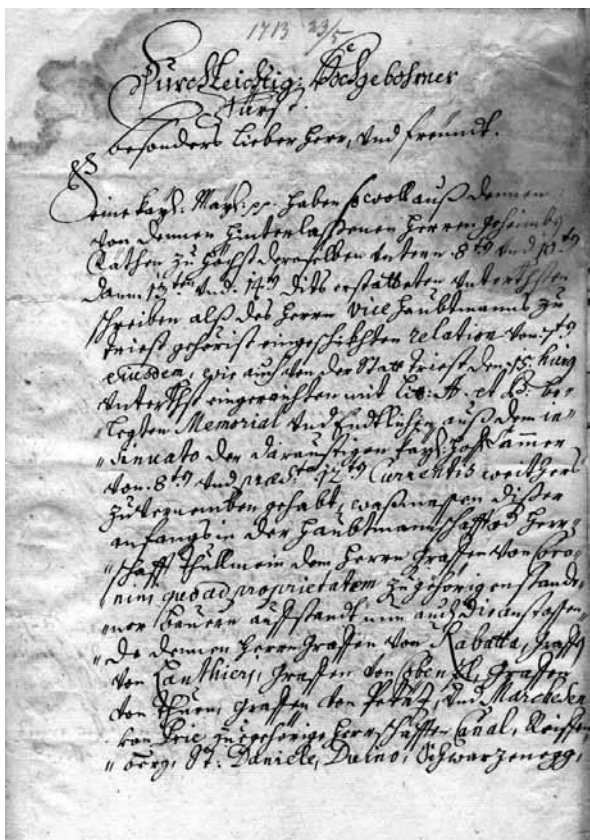 1713 23/5
Durchleichtig: Hochgebohrner
Fürst.
besonders lieber Herr, und freündt.
Seine kay: May: pp: haben sowoll auß denen
von denen hinterlassenen Herren geheimben
Räthen zu höchst deroselben untern 8ten und 10ten
dann 13ten und 14ten dits erstatteten
schreiben alß des Herrn Vice Haubtmanns zu
triest gehorist eingeschickhten relation von
ejusdem, wie auch von der Statt triest den 15. hujus
eingeraichten mit Lit: A. et B. be-
legten Memorial und Endtlichen auß dem in-
sinuato der daraustigen kay: hof Cammer
von 8ten und 12ten Currentis weithers
zu vernemben gehabt, waßmassen diser
anfangs in der Haubtmannschafft oder Herr-
schafft Thullmein dem Herrn Graffen von Coro-
nini quoad proprietatem zugehörig enstande-
ner bauern auffstandt nun auch die anstossen-
de denen Herrn Graffen von Rabatta, Graffen
von Lanthieri, Graffen von Cobenzl, Graffen
von Thurn, Graffen von Petaz, und Marchesen
von Prie zugehörige Herrschafften Canal, Reiffen-
berg, St: Daniele, Duino, Schwarzenegg,